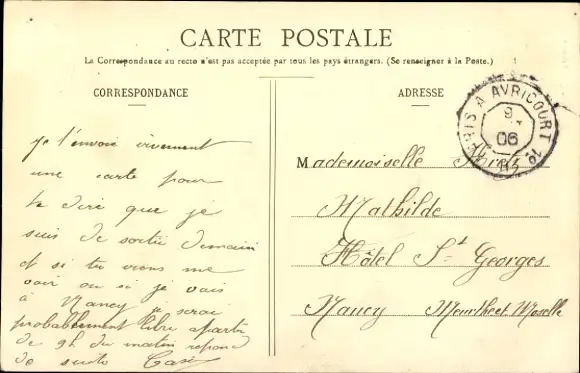 CARTE POSTALE
La Correspondance au recto n'est pas acceptée par tous les pays étrangers. (Se renseigner à la Poste.)
CORRESPONDANCE
je t'envoie vivement
une carte pour
te dire que je
suis de sortie demain
et si tu viens me
voir ou si je vais
à Nancy je serai
probablement libre apartir
de 9h du matin repond
de suite
ADRESSE
PARIS A AVRICOURT 1º
9
06
Mademoiselle
Mathilde
Hôtel St Georges
Nancy Meurthe et Moselle